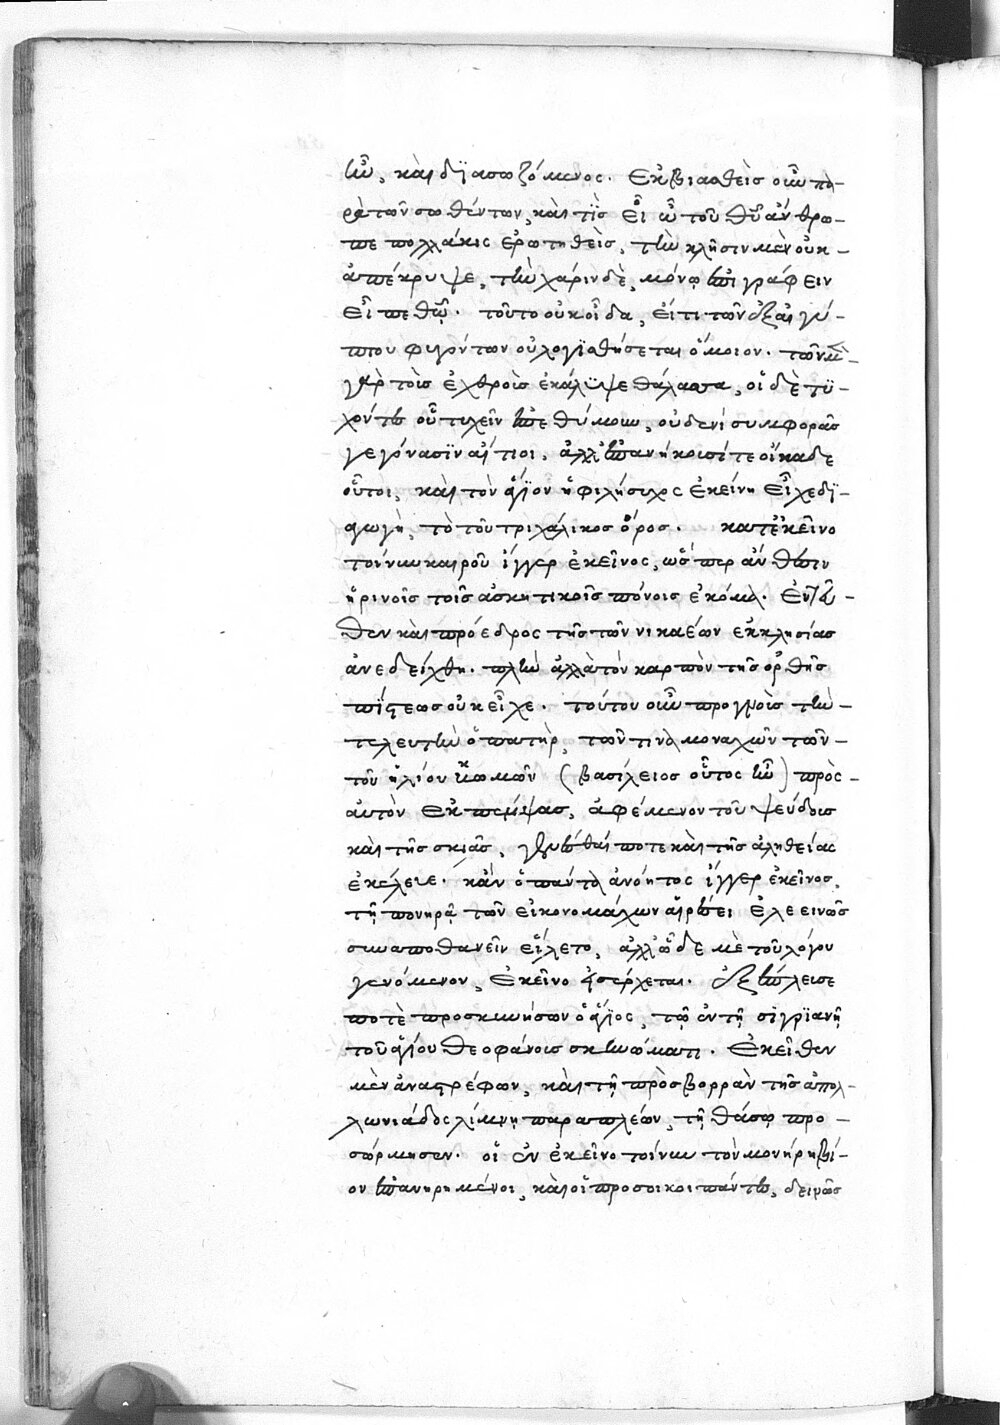 ἦν, καὶ διασωζόμενος. Ἐκβιασθεὶς οὖν πα-
ρὰ τῶν σωθέντων, καὶ τίς εἶ ὦ τοῦ θῦ ἄνθρω-
πε πολλάκις ἐρωτηθεὶς, τὴν κλῆσιν μὲν οὐκ
ἀπέκρυψε, τὴν χάριν δὲ, μόνῳ ἐπιγράφειν
εἶπε θῶ. τοῦτο οὐκ οἶδα, εἴ τι τῶν ἐξ αἰγύ-
πτου φυγόντων οὐ λογϊσθήσεται ὅμοιον. τῶν μὲ-
γὰρ τοῖς ἐχθροῖς ἐκάλυψε θάλασσα, οἱ δὲ τϋ-
χόντες οὗ τυχεῖν ἐπεθύμουν, οὐδενὶ συμφορᾶς
γεγόνασϊν αἴτιοι. ἀλλ' ἐπανήκοισί τε οἴκαδε
οὗτοι, καὶ τὸν ἅγϊον ἡ φιλήσυχος ἐκείνη εἶχε δϊ-
αγωγὴ, τὸ τοῦ τριχάλικος ὄρος. κατ' ἐκεῖνο
τοίνυν καιροῦ ἴγγερ ἐκεῖνος, ὥσπερ ἄνθεσιν
ἠρινοῖς τοῖς ἀσκητικοῖς πόνοις ἐκόμα. Ἐντεῦ-
θεν καὶ πρόεδρος τῆς τῶν νικαέων ἐκκλησίας
ἀνεδείχθη. πλὴν ἀλλὰ τὸν καρπὸν τῆς ὀρθῆς
πίστεως οὐκ εἶχε. τούτου οὖν προγνοὺς τὴν
τελευτὴν ὁ πατὴρ, τῶν τινὰ μοναχῶν τῶν
τοῦ ἡλίου κωμῶν (βασίλειος οὗτος ἦν) πρὸς
αὐτὸν ἐκπέμψας, ἀφέμενον τοῦ ψεύδους
καὶ τῆς σκιᾶς, γευσθαί ποτε καὶ τῆς ἀληθείας
ἐκέλευε. κἂν ὁ πάντα ἀνόητος ἴγγερ ἐκεῖνος,
τῇ πονηρᾷ τῶν εἰκονομάχων αἱρέσει ἐλεεινῶς
συναποθανεῖν εἵλετο, ἀλλ' ὧδε μὲ τοῦ λόγου
γενόμενον, ἐκεῖνο εἰσέρχεται. ἐξέπλευσε
ποτὲ προσκυνήσων ὁ ἅγϊος, τῷ ἐν τῇ σιγριανῇ
τοῦ ἁγίου θεοφάνους σκηνώματι. Ἐκεῖθεν
μὲν ἀναστρέφων, καὶ τῇ πρὸς βορρὰν τῆς ἀπολ-
λωνιάδος λίμνῃ παραπλέων, τῇ θάσῳ προ-
σώρμησεν. οἱ ἐν ἐκείνῳ τοίνυν τὸν μονήρη βί-
ον ἐπανῃρημένοι, καὶ οἱ πρόσοικοι πάντες, δεινῶς